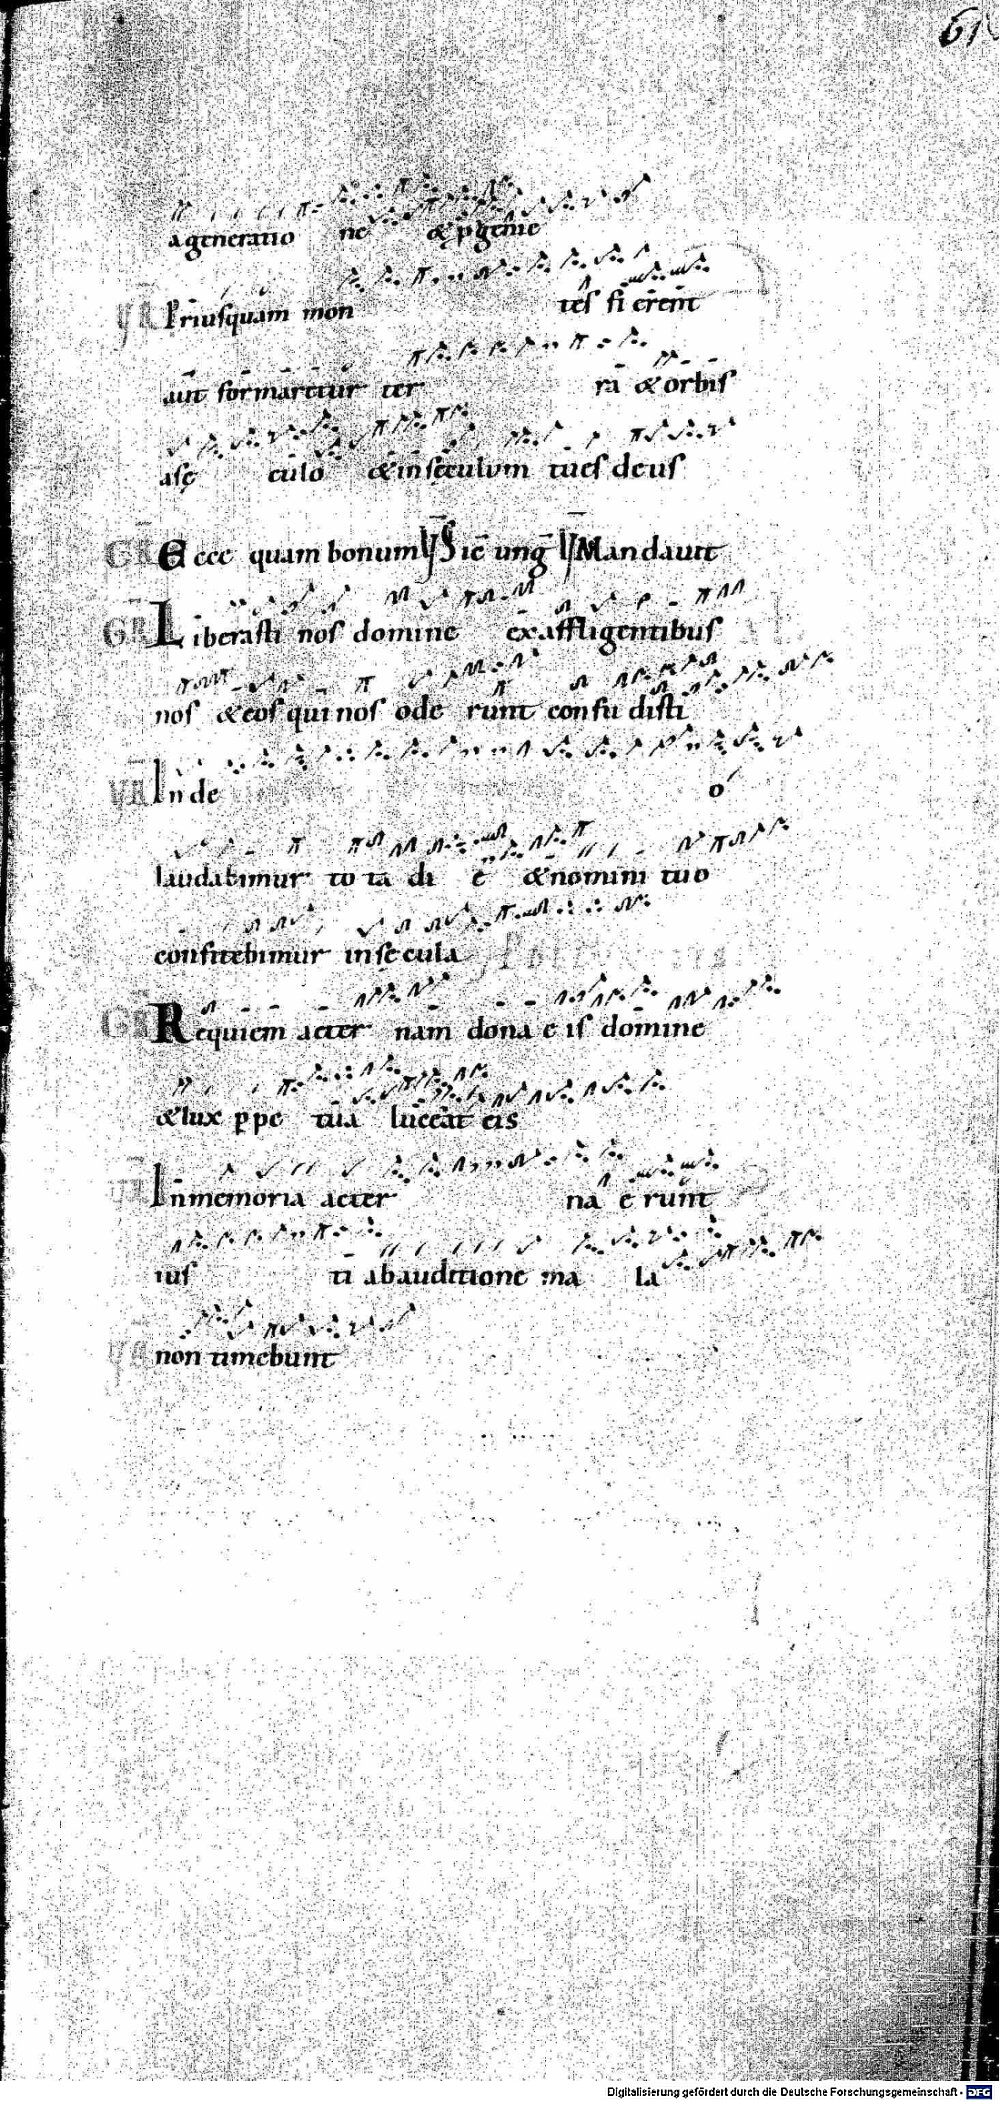 61
a generatio ne & p̱genie
VR̄ Priusquam mon tes fierent
aut formaretur ter ra & orbis
a sę culo & in sęculum tu es deus
GR̄ Ecce quam bonum V̄ Sic̄ unḡ V̄ Mandavit
GR̄ Liberasti nos domine ex affligentibus
nos & eos qui nos ode runt confu disti
VR̄ In de o
laudabimur to ta di e & nomini tuo
confitebimur in se cula
GR̄ Requiem aeter nam dona eis domine
& lux p̱pe tua luceat eis
VR̄ In memoria aeter na e runt
ius ti ab auditione ma la
non timebunt
Digitalisierung gefördert durch die Deutsche Forschungsgemeinschaft - DFG